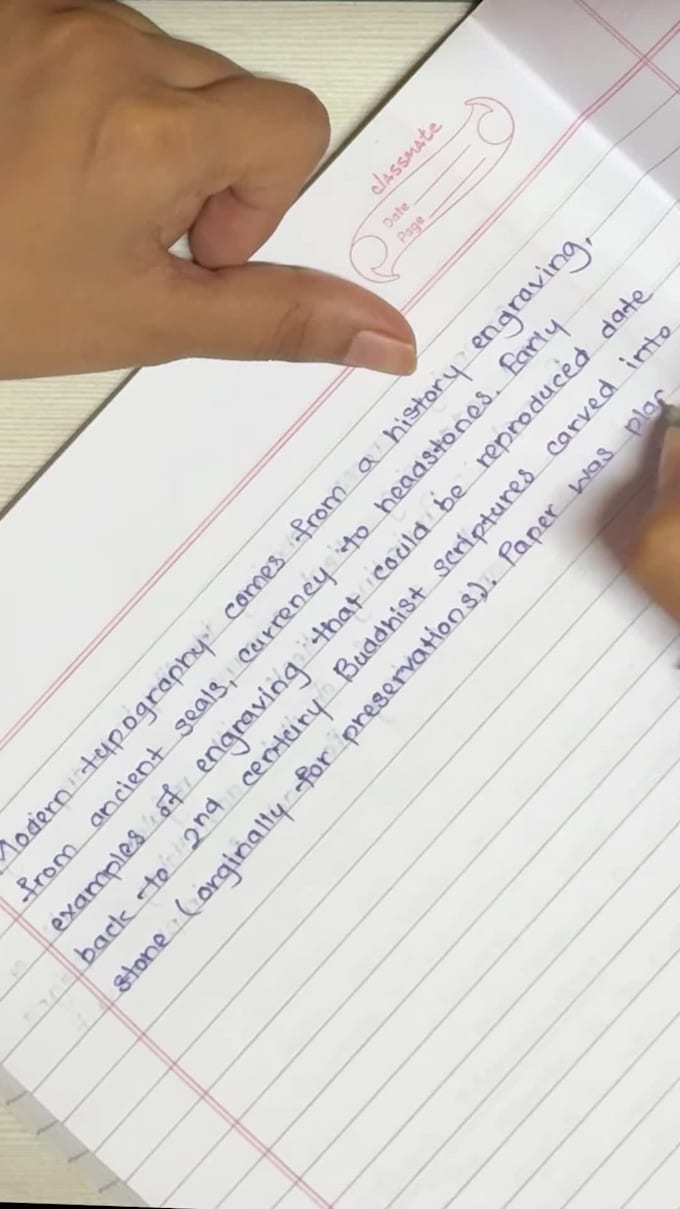 classmate
Date
Page
Modern typography comes from a history engraving,
from ancient seals, currency to headstones. Early
examples of engraving that could be reproduced date
back to 2nd century Buddhist scriptures carved into
stone (orginally for preservations). Paper was plac